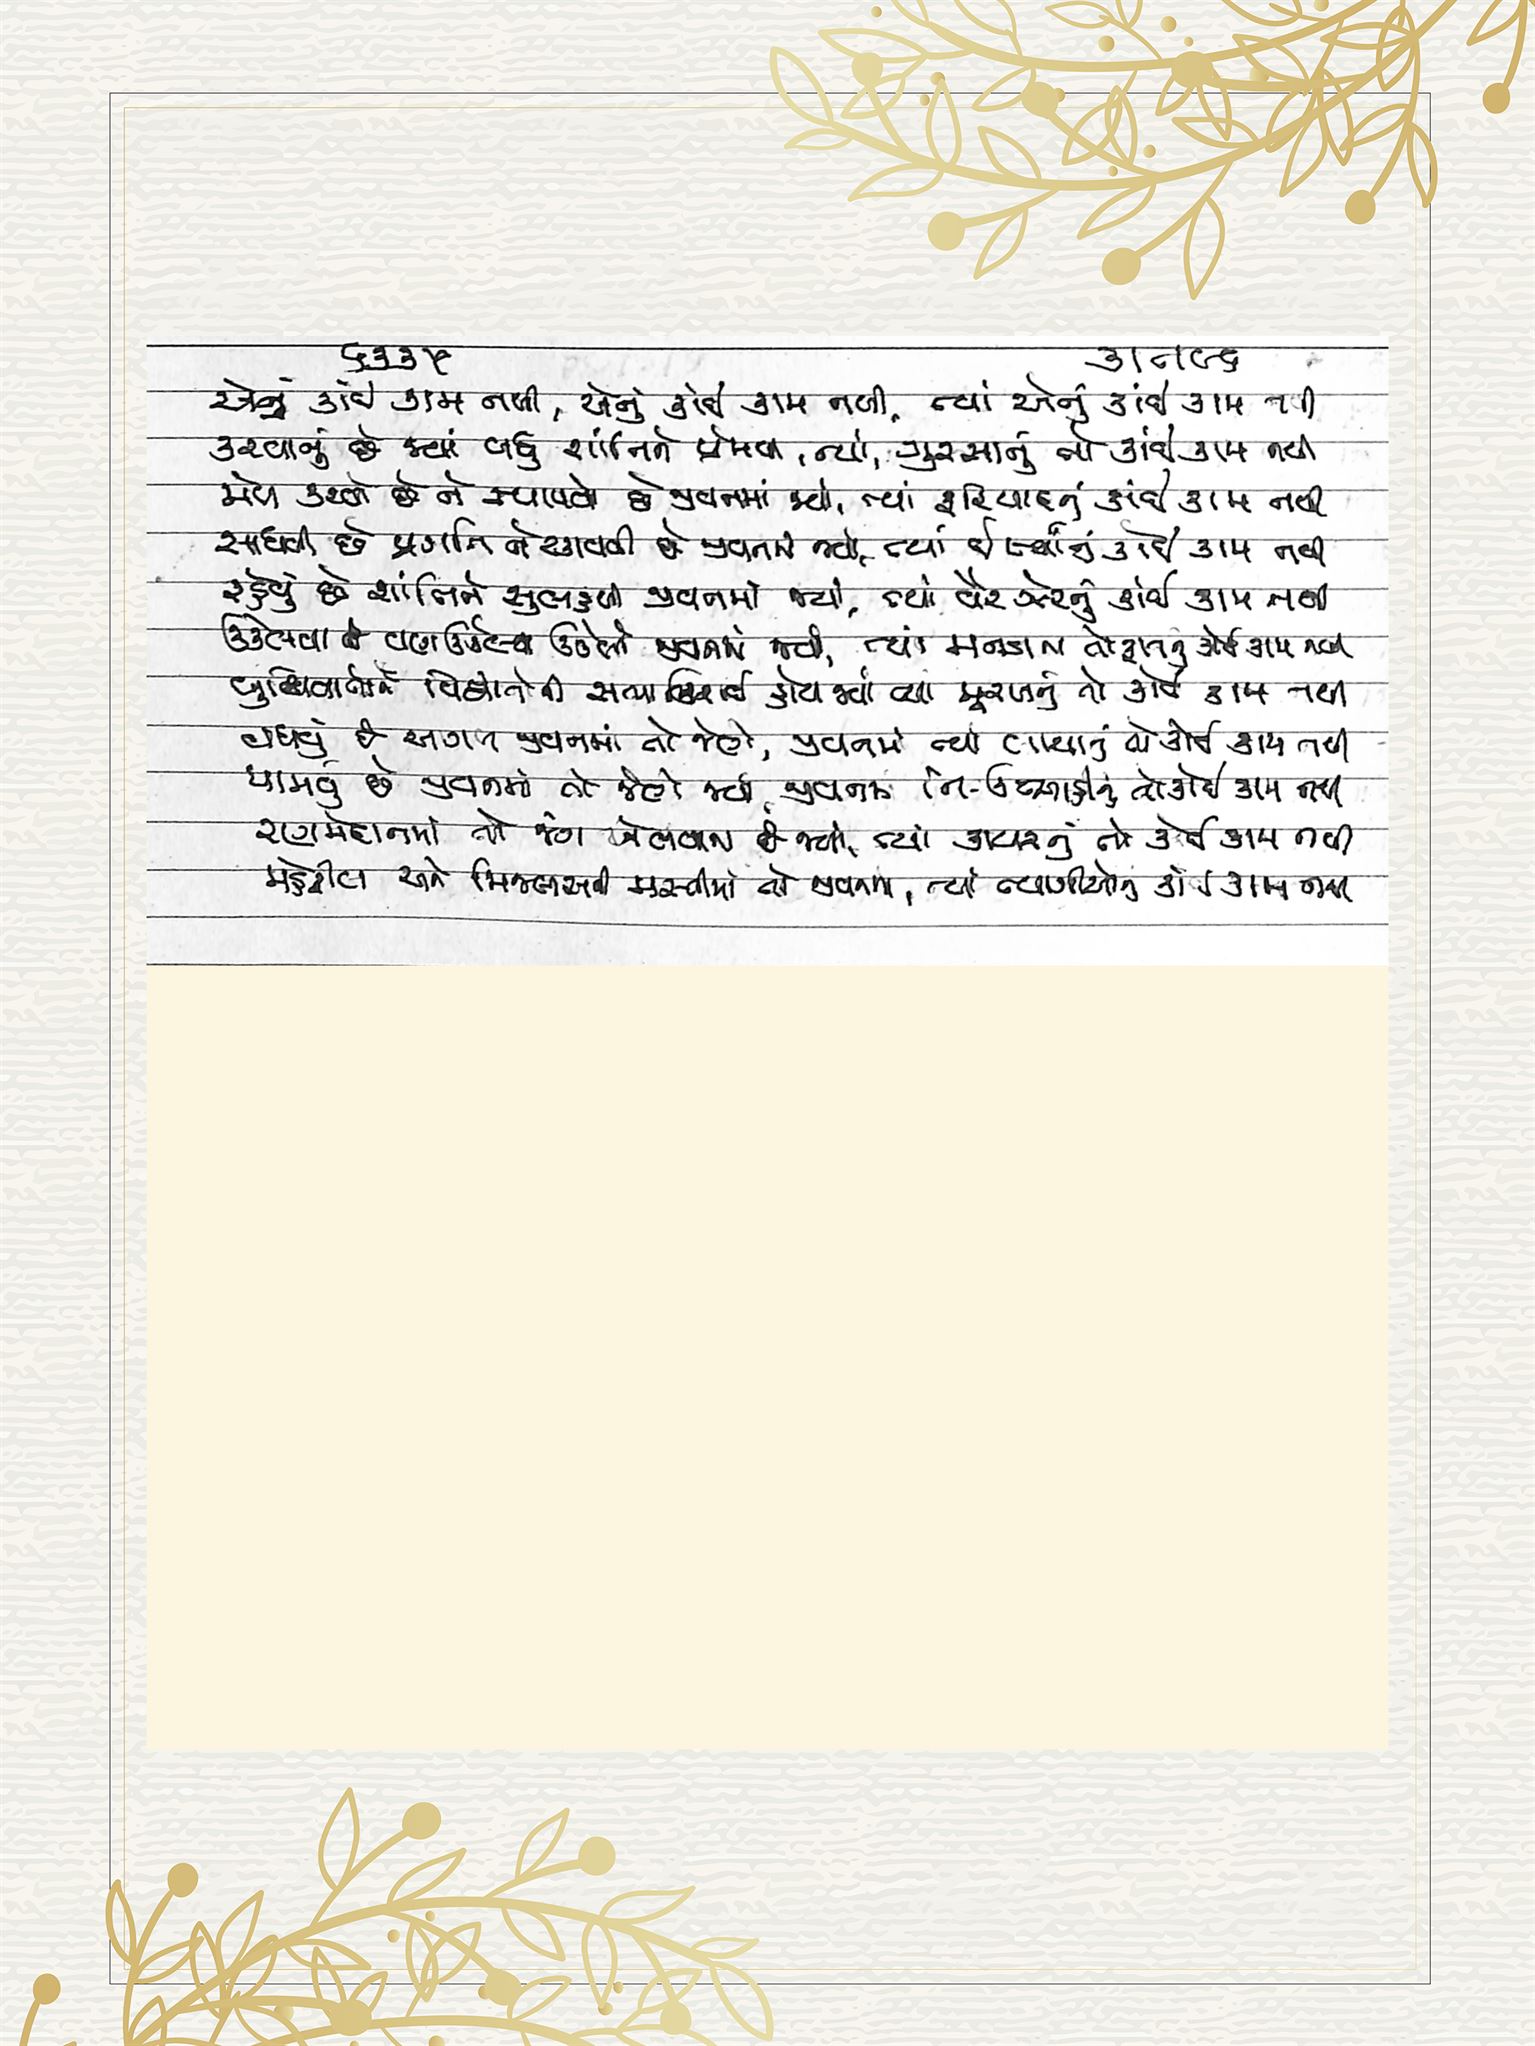 ૬૩૩૫
એનું કાંઈ કામ નથી, એનું કાંઈ કામ નથી, ત્યાં એનું કાંઈ કામ નથી
કરવાનું છે જ્યાં બધું શાંતિને પ્રેમથી, ત્યાં, ગુસ્સાનું તો કાંઈ કામ નથી
મેળ કરવો છે ને સ્થાપવો છે જીવનમાં જ્યાં, ત્યાં ફરિયાદનું કાંઈ કામ નથી
સાધવી છે પ્રગતિ ને લાવવી છે જીવનમાં જ્યાં, ત્યાં ઈર્ષ્યાનું કાંઈ કામ નથી
રહેવું છે શાંતિને સુલેહથી જીવનમાં જ્યાં, ત્યાં વૈરઝેરનું કાંઈ કામ નથી
ઉકેલવા છે વણઉકેલ્યા ઉકેલો જીવનમાં જ્યાં, ત્યાં મનના તોફાનનું કોઈ કામ નથી
બુદ્ધિવાનોને વિદ્વાનોની સભા ભરાઈ હોય જ્યાં ત્યાં મૂરખનું તો કોઈ કામ નથી
વધવું છે આગળ જીવનમાં તો જેણે, જીવનમાં ત્યાં તો કોઈ કામ નથી
પામવું છે જીવનમાં તો જેણે જ્યાં, જીવનમાં નિરુત્સાહીનું તો કોઈ કામ નથી
રણમેદાનમાં તો જંગ ખેલવાના છે જ્યાં, ત્યાં કાયરનું તો કોઈ કામ નથી
મહેફીલ અને મિજલસની મસ્તીમાં તો જીવનમાં, ત્યાં ત્યાગીઓનું કોઈ કામ નથી